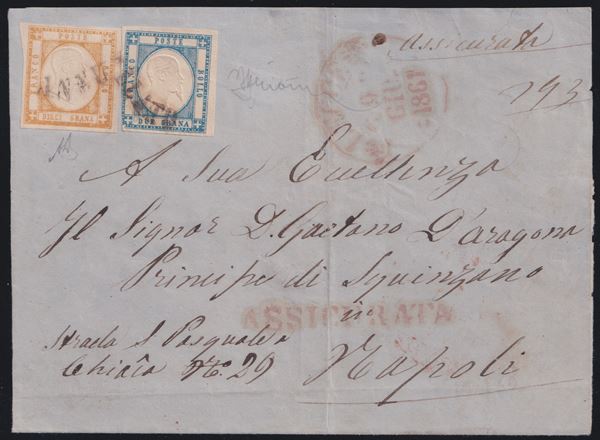 POSTE
FRANCO
BOLLO
DIECI GRANA
POSTE
FRANCO
BOLLO
DUE GRANA
ANNULLATO
GIU
1861
assicurata
193
A Sua Eccellenza
Il Signor D. Gaetano D'aragona
Principe di Squinzano
ASSICURATA
in
Strada S Pasquale a
Chiaia No. 29
Napoli